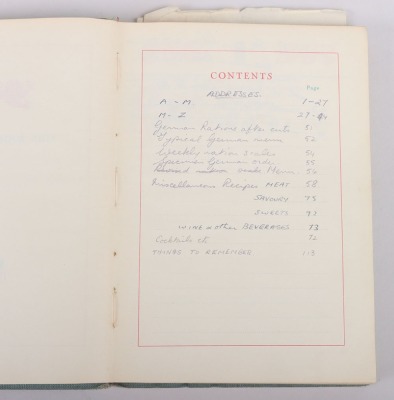 CONTENTS
Page
ADDRESSES.
A - M 1-27
M - Z 27-44
German Rations after cuts 51
Typical German menu 52
Weekly ration scales 54
Specimen German order 55
Menu 56
Miscellaneous Recipes MEAT 58
SAVOURY 73
SWEETS 93
WINE & other BEVERAGES 33
Cocktails etc 72
THINGS TO REMEMBER 113